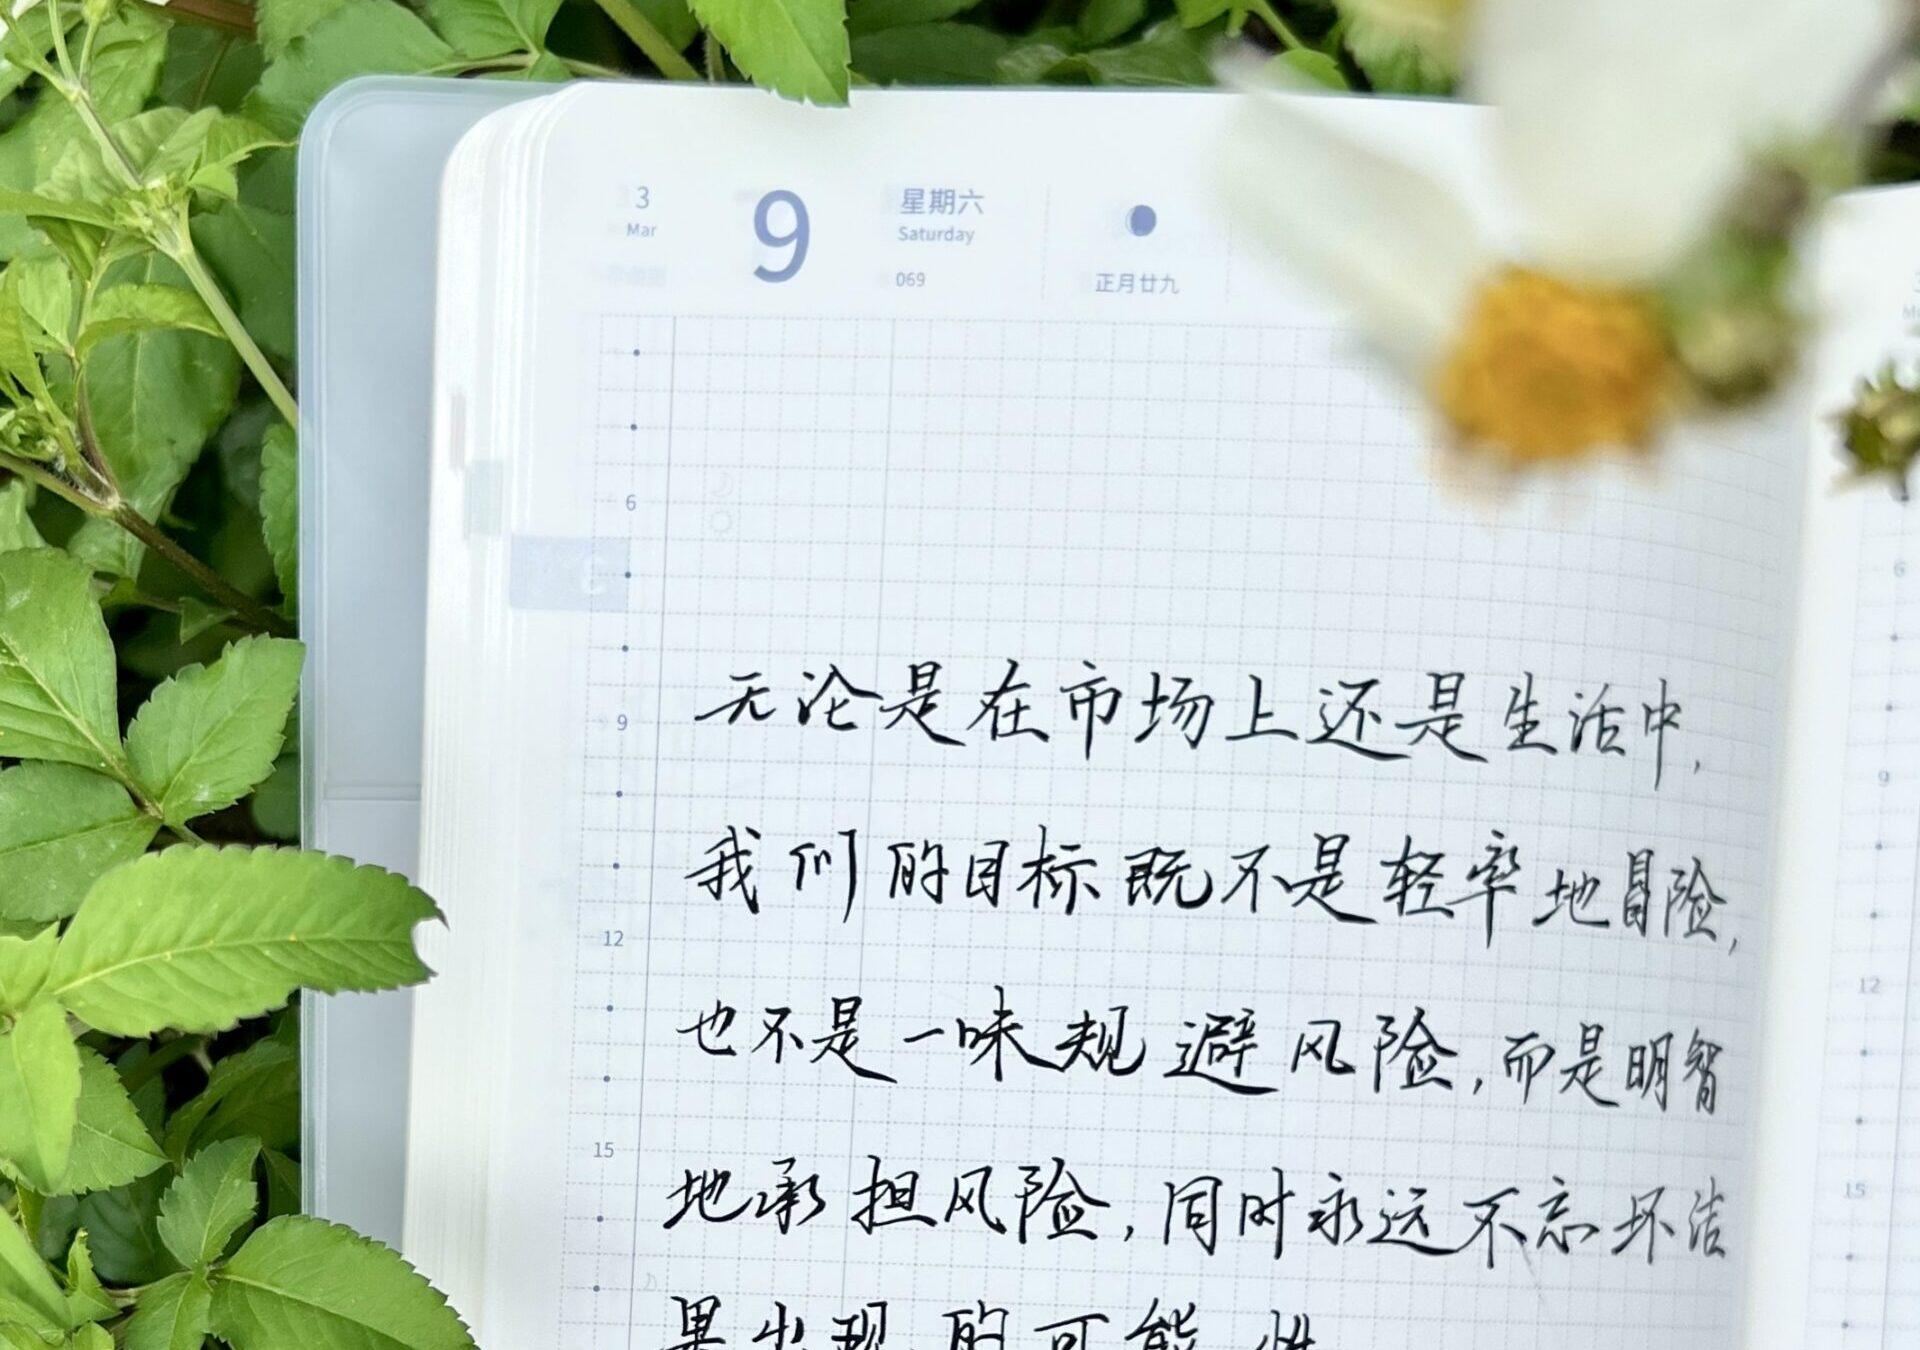 3
Mar
9
星期六
Saturday
069
正月廿九
6
9
12
15
无论是在市场上还是生活中，
我们的目标既不是轻率地冒险，
也不是一味规避风险，而是明智
地承担风险，同时永远不忘坏结
果出现的可能性
6
9
12
15